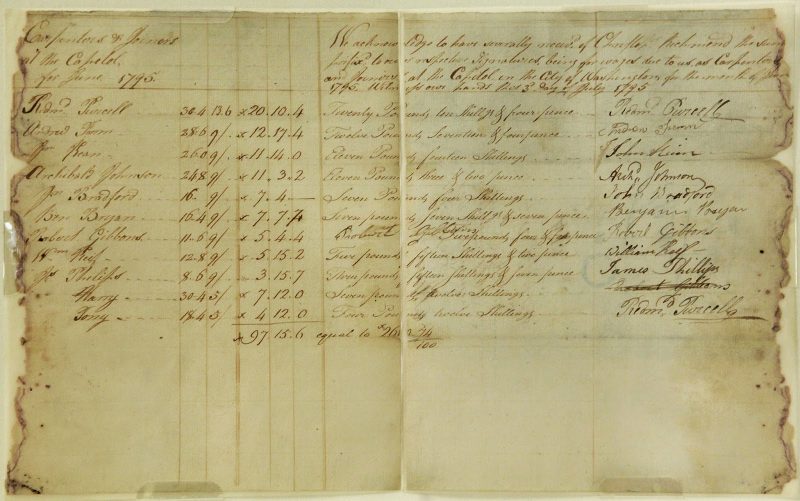 Carpenters & Joiners
at the Capitol,
for June 1795.
We acknowledge to have severally received of Christ. Richmond the sums
to our respective Signatures, being our wages due to us, as Carpenters
and Joiners at the Capitol in the City of Washington, for the month of June
1795. Witness our hands this 3 day of July 1795
Redmd. Purcell 30.4 13.6 x 20.10.4 Twenty Pounds ten Shillgs & four pence Redmd. Purcell
28.6 9/. x 12.17.4 Twelve Pounds Seventeen & fourpence
26.0 9/. x 11.14.0 Eleven Pounds fourteen Shillings
Archibald Johnson 24.8 9/. x 11.3.2 Eleven Pounds three & two pence Archd. Johnson
Jno. Bradford 16. 9/ x 7.4 — Seven Pounds four Shillings John Bradford
Ben Bryan 16.4 9/. x 7.7. Seven pounds seven Shillgs & seven pence Benjamin Bryan
Robert Gibbons 11.6 9/. x 5.4.4 five pounds four & four pence Robert Gibbons
12.8 9/. x 5.15.2 Five pounds fifteen Shillings & two pence William
Js. Phillips 8.6 9/. x 3.15.7 Three pounds fifteen shillings & seven pence James Phillips
Harry 30.4 5/ x 7.12.0 Seven pounds twelve Shillings
Tomy 18.4 5/ x 4 12.0 Four Pounds twelve Shillings Redmd. Purcell
x 97 15.6 equal to
100